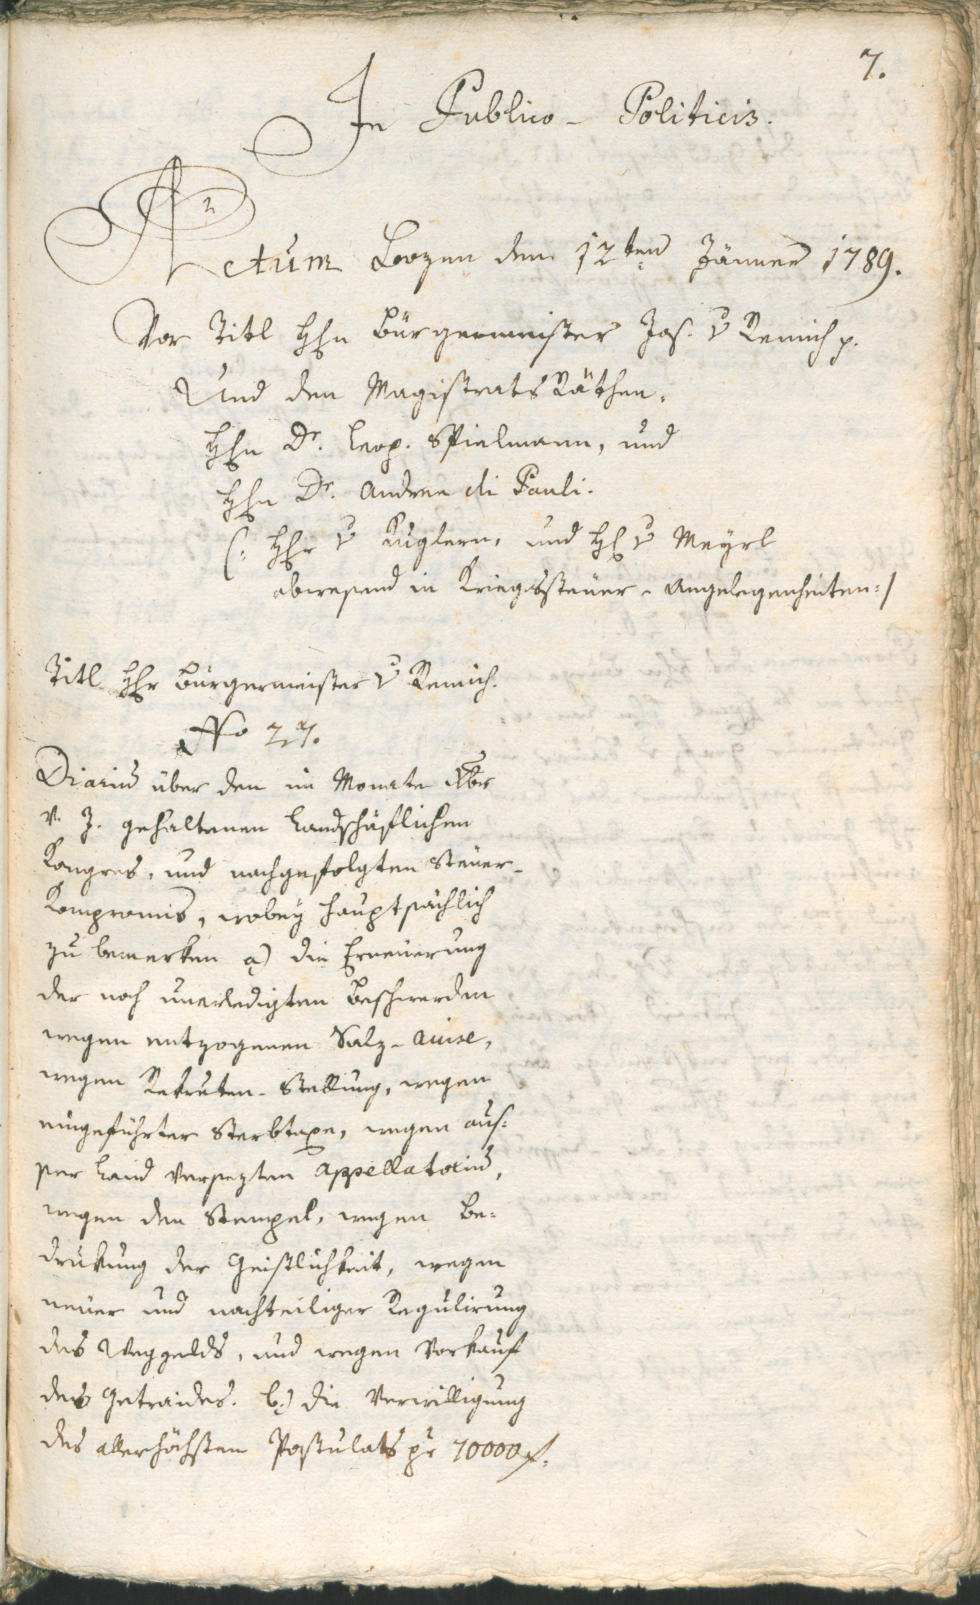 7.
In Publico-Politicis.
Actum Bozen den 12ten Jänner 1789.
Vor Titl Hhn Bürgermeister Jos. v Remich p.
Und den Magistrats Räthen,
Hhn Dr. Leop. Spielmann, und
Hhn Dr. Andree di Pauli.
(: Hhr v Kuglern, und H v Meyrl
abwesend in Kriegssteuer-Angelegenheiten :/
Titl Hhr Bürgermeister v Remich.
No 27.
Diarium über den im Monate Xbr
v. J. gehaltenen Landschäftlichen
Kongres, und nachgefolgten Steuer-
Kompromis, wobey hauptsächlich
zu bemerken a) die Erneuerung
der noch unerledigten Beschwerden
wegen entzogenen Salz-
wegen Rekruten-Stellung, wegen
eingeführter Sterbtaxe, wegen aus-
ser Land versezten Appellatorium,
wegen den Stempel, wegen Be-
drükung der Geistlichkeit, wegen
neuer und nachteiliger Regulirung
des Weggelds, und wegen Vorkauf
des Getraides. b.) die Verwilligung
des allerhöchsten Postulats pr 70000 f.